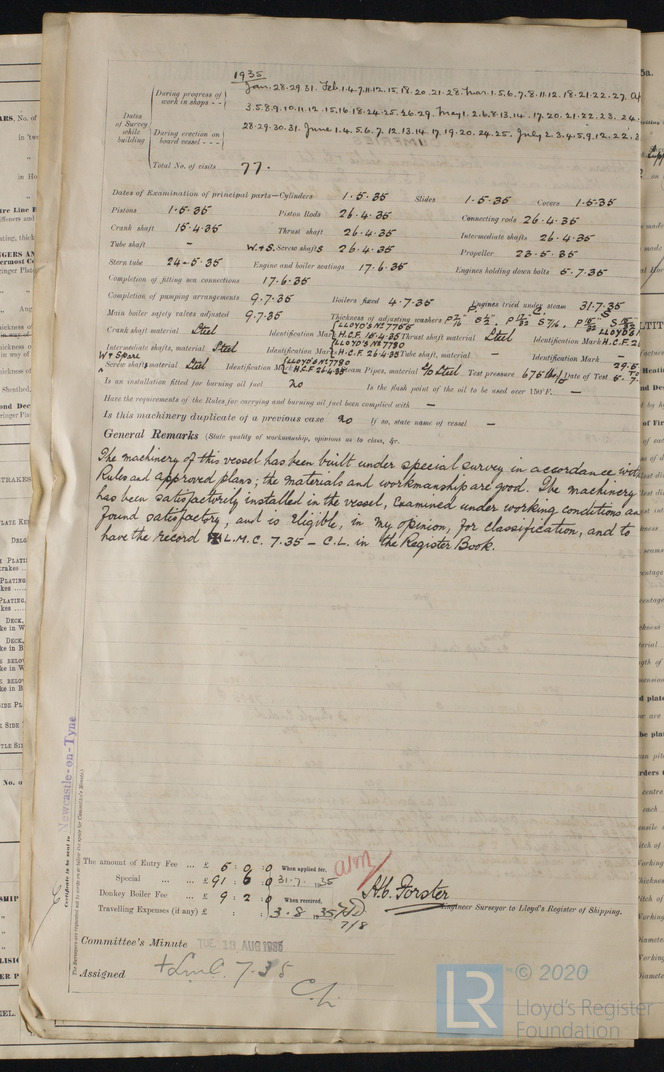 1935
During progress of work in shops - - Jan. 28. 29. 31. Feb. 1. 4. 7. 11. 12. 15. 18. 20. 21. 28. Mar. 1. 5. 6. 7. 8. 11. 12. 18. 21. 22. 27.
3. 5. 8. 9. 10. 11. 12. 15. 16. 18. 24. 25. 26. 29. May 1. 2. 6. 8. 13. 14. 17. 20. 21. 22. 23. 24.
Dates of Survey while building
During erection on board vessel - - - 28. 29. 30. 31. June 1. 4. 5. 6. 7. 12. 13. 14. 17. 19. 20. 24. 25. July 2. 3. 4. 5. 9. 12. 22.
Total No. of visits 77.
Dates of Examination of principal parts—Cylinders 1.5.35 Slides 1.5.35 Covers 1.5.35
Pistons 1.5.35 Piston Rods 26.4.35 Connecting rods 26.4.35
Crank shaft 15.4.35 Thrust shaft 26.4.35 Intermediate shafts 26.4.35
Tube shaft - W.+S. Screw shafts 26.4.35 Propeller 23.5.35
Stern tube 24.5.35 Engine and boiler seatings 17.6.35 Engines holding down bolts 5.7.35
Completion of fitting sea connections 17.6.35
Completion of pumping arrangements 9.7.35 Boilers fixed 4.7.35 Engines tried under steam 31.7.35
Main boiler safety valves adjusted 9.7.35 Thickness of adjusting washers
Crank shaft material Steel Identification Mark LLOYD'S No 7755 H.C.F. 15.4.35 Thrust shaft material Steel Identification Mark LLOYD'S
Intermediate shafts, material Steel Identification Marks LLOYD'S No 7790 H.C.F. 26.4.35 Tube shaft, material - Identification Mark -
W + Spare Screw shaft, material Steel Identification Mark LLOYD'S No 7790 H.C.F. 26.4.35 Steam Pipes, material Steel Test pressure 675 Date of Test
Is an installation fitted for burning oil fuel no Is the flash point of the oil to be used over 150°F. -
Have the requirements of the Rules for carrying and burning oil fuel been complied with -
Is this machinery duplicate of a previous case no If so, state name of vessel -
General Remarks (State quality of workmanship, opinions as to class, &c.
The machinery of this vessel has been built under special survey in accordance with
Rules and approved plans; the materials and workmanship are good. The machinery
has been satisfactorily installed in the vessel, examined under working conditions an
found satisfactory, and is eligible, in my opinion, for classification, and to
have the record ✠ L.M.C. 7.35 - C.L. in the Register Book.
Newcastle-on-Tyne
Certificate to be sent to
The amount of Entry Fee ... £ 5 : 0 : 0 When applied for,
Special ... ... £ 91 : 6 : 0 31.7.1935
Donkey Boiler Fee ... £ 9 : 2 : 0 When received,
Travelling Expenses (if any) £ : : 3.8.1935 7/8
H.C. Forster
Engineer Surveyor to Lloyd's Register of Shipping.
Committee's Minute TUE 13 AUG 1935
Assigned + L.M.C. 7.35
C.L.
LR © 2020
Lloyd's Register
Foundation